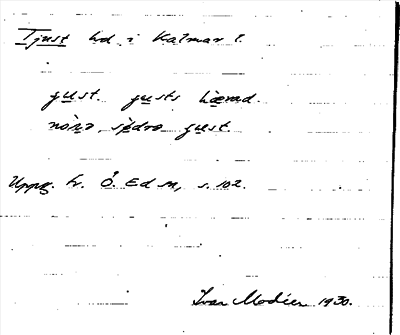 Tjust hd i Kalmar l.
just. justs härad.
norra, södra just
Uppg. fr. Ö. Ed sn, s. 102.
Ivar Modéer 1930.